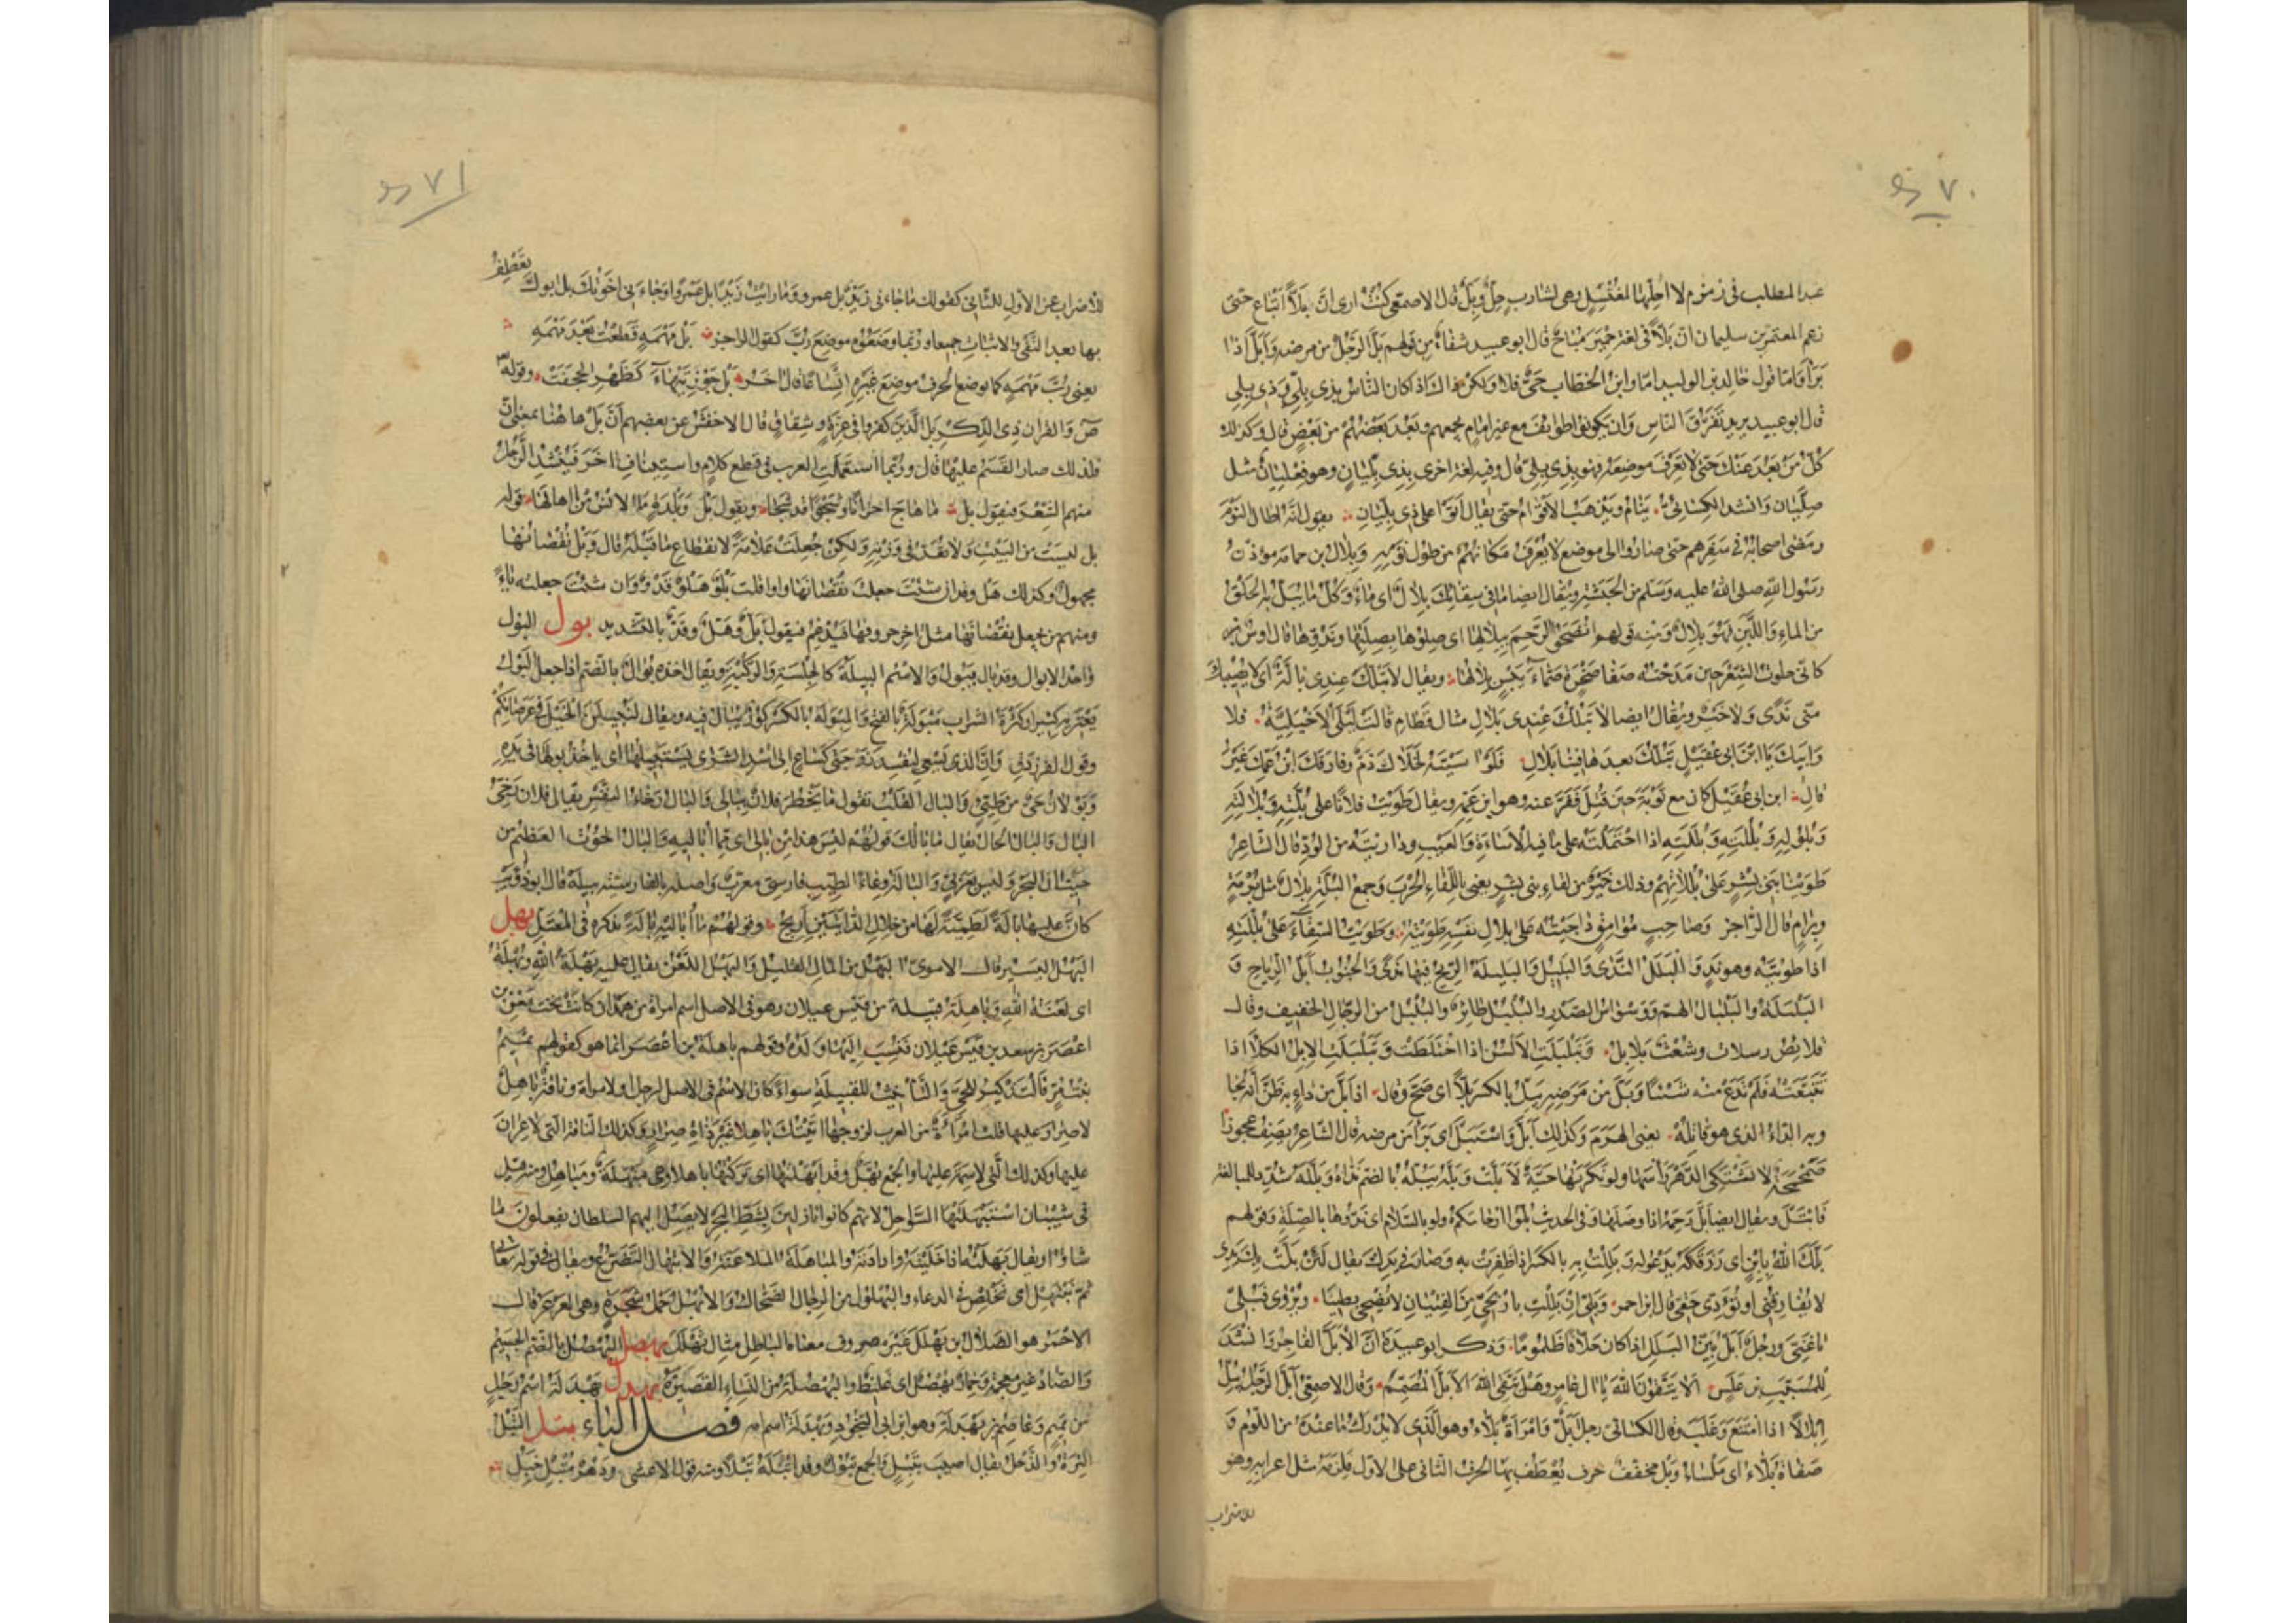 ٧٠
عبد المطلب فى زمزم لا احلّها لمغتسل وهى لشارب حِلٌّ وبِلٌّ قال الاصمعى كنت ارى انّ بِلاًّ اتباع حتى
زعم المعتمر بن سليمان انّ بِلاًّ فى لغة حِمْيَر مباح قال ابو عبيد شفاء من قولهم بَلَّ الرجل من مرضه وَاَبَلَّ اذا
بَرَأ وَامّا قول خالد بن الوليد امّا وابن الخطاب حىٌّ فلا ولكن ذاك اذا كان الناس بذى بِلِّىٍ وذى بِلِى
قال ابو عبيد يريد تفرّق الناس وان يكونوا طوائف مع غير امام يجمعهم وبُعْد بعضهم من بعض قال وكذلك
كلّ من بَعُدَ عنك حتى لا تعرف موضعه فهو بذى بِلِىّ قال وفيه لغة اخرى بذى بِلِّيَان وهو فِعْلِيَان مثل
صِلِّيَان وَانشد الكسائىّ ينام ويذهب الاقوام حتى يقال اتوا على ذى بِلِّيَانِ يقول انّه اطال النوم
ومضى اصحابه فى سفرهم حتى صاروا الى موضع لا يعرف مكانهم من طول نومه وبِلال بن حمامة مؤذن
رسول الله صلى الله عليه وسلم من الحبشة ويقال ايضا ما فى سقائك بِلال اى ماء وكلّ ما يُبَلّ به الحلق
من الماء واللبن فهو بِلال ومنه قولهم انضحوا الرحم ببلالها اى صلوها بصلتها وندّوها قال اوس
كانّى حلوت الشعر حين مدحته صفا صخرة صمّاء يَبْسٍ بلالها ويقال لا تَبُلُّك عندى بالّة اى لا يصيبك
منّى ندًى ولا خير ويقال ايضا لا تَبُلُّك عندى بَلالِ مثال قطامِ قالت ليلى الاخيليّة فلا
وابيك يا ابن ابى عقيل تبلّك بعدها فينا بلالِ فلو اسيته لخلاك ذمّ وفارقك ابن عمّك غير
قالِ ابن ابى عقيل كان مع توبة حين قُتِل ففرّ عنه وهو ابن عمّه ويقال طويت فلانا على بُلَّته وبُلالَته
وبُلُولِه وبُلُلَته وبُلَلَته اذا احتملته على ما فيه من الاساءة والعيب وداريته وفيه بقيّة من الودّ قال الشاعر
طوينا بنى بشر على بُلُلاتهم وذلك خير من لقاء بنى بشر يعنى باللقاء الحرب وجمع البُلّة بِلال مثل بُرمة
وبرام قال الراجز وصاحبٍ مُرامِقٍ داجيته على بلال نفسه طويته وطويت السقاء على بُلُلَته
اذا طويته وهو ندٍ والبَلَل الندى والبليل والبليلة الريح فيها ندى والجنوب ابلّ الرياح و
البلبلة والبلبال الهمّ ووسواس الصدر والبلبل طائر والبلبل من الرجال الخفيف وقال
قلائص رسلات وشُعث بَلابل وتبلبلت الالسن اذا اختلطت وتبلبلت الابل الكلأ اذا
تتبّعته فلم تدع منه شيئا وبَلَّ من مرضه يَبِلّ بالكسر بَلاًّ اى صحّ وقال اذا بلّ من داء به ظنّ انّه نجا
وبه الداء الذى هو قاتله يعنى الهرم وكذلك اَبَلَّ واستبلّ اى برأ من مرضه قال الشاعر يصف عجوزا
صَمَحْمَحَة لا تشتكى الدهر رأسها ولو نكزتها حيّة لاَبَلَّت وبَلَّه يبُلّه بالضم نداه وبلّله شدّد للمبالغة
فابتلّ ويقال ايضا بلّ رحمه اذا وصلها وفى الحديث بُلّوا ارحامكم ولو بالسلام اى ندّوها بالصلة وقولهم
بلّك الله بابن اى رزقكه يدعو له وبَلِلْتُ به بالكسر اذا ظفرت به وصار فى يدك يقال لئن بَلَّت بك يدى
لا تفارقنى او تؤدّى حقّى قال ابن احمر وبَلِّى ان بَلِلْتِ باريحىّ من الفتيان لا يضحى بطينا ويروى فبلّى
يا غنىّ ورجل ابلّ بيّن البَلَل اذا كان حلاّفا ظلوما وذكر ابو عبيدة انّ الابلّ الفاجر وانشد
للمسيّب بن علس الا يتّقون الله يا ال عامر وهل يتّقى الله الابلّ المصمّم وقال الاصمعى ابلّ الرجل يبلّ
اِبلالا اذا امتنع وغلب وقال الكسائى رجل ابلّ وامرأة بلاّء وهو الذى لا يُدرَك ما عنده من اللؤم و
صفاة بلاّء اى ملساء وبل مخفّف حرف يُعطف بها الحرف الثانى على الاوّل فيلزمه مثل اعرابه وهو
للاضراب
٧١
للاضراب عن الاوّل للثانى كقولك ما جاءنى زيد بل عمرو وما رايت زيدا بل عمرا وجاءنى اخوك بل ابوك تعطف
بها بعد النفى والاثبات جميعا وربّما وضعوه موضع ربّ كقول الراجز بل مَهْمَهٍ قطعت بعد مَهْمَهِ
يعنى ربّ مهمه كما يوضع الحرف موضع غيره اتساعا قال اخر بل جَوْزِ تيهاء كظهر الحَجَفَت وقوله
ص والقران ذى الذكر بل الذين كفروا فى عزّة وشقاق قال الاخفش عن بعضهم انّ بل هاهنا بمعنى انّ
فلذلك صار القسم عليها قال وربّما استعملت العرب فى قطع كلام واستيناف اخر فينشد الرجل
منهم الشعر فيقول بل ما هاج احزانا وشجوا قد شجا ويقول بل وبلدة ما الانس من اهالها قوله
بل ليست من البيت ولا تعدّ فى وزنه ولكن جعلت علامة لانقطاع ما قبله قال وبل نقصانها
مجهول وكذلك هل وقد ان شئت جعلت نقصانها واوا قلت بَلْوٌ هَلْوٌ قَدْوٌ وان شئت جعلته ياء
ومنهم من يجعل نقصانها مثل اخر حروفها فيدغم فيقول بلّ وهلّ وقدّ بالتشديد بول البول
واحد الابوال وقد بال يبول والاسم البِيلة كالجِلسة والرِكبة ويقال اخذه بُوال بالضم اذا جعل البول
يعتريه كثيرا وكثرة الشراب مَبْوَلة بالفتح والمِبْوَلة بالكسر كوز يبال فيه ويقال لنُبيلنّ الخيل فى عرصاتكم
وقول الفرزدق وانّ الذى يسعى ليفسد زوجتى كساع الى اسد الشرى يستبيلها اى ياخذ بولها فى يده
وبَوْلان حىّ من طيّئ والبال القلب تقول ما يخطر فلان ببالى والبال رخاء النفس يقال فلان رخىّ
البال والبال الحال يقال ما بالك وقولهم ليس هذا من بالى اى ممّا اباليه والبال الحوت العظيم من
حيتان البحر وليس بعربىّ والبالة وعاء الطيب فارسىّ معرّب واصله بالفارسيّة بيلة قال ابو ذؤيب
كانّ عليها بالة لَطَمِيّة لها من خلال الدأيتين اريج وقولهم ما اباليه بالة نذكره فى المعتلّ بهل
البَهْل اليسير قال الاموىّ البهل من المال القليل والبهل اللعن يقال عليه بَهلة الله وبُهلته
اى لعنة الله وباهلة قبيلة من قيس عيلان وهو فى الاصل اسم امرأة من همدان كانت تحت معن بن
اعصر بن سعد بن قيس عيلان فنسب اليها ولده وقولهم باهلة بن اعصر انما هو كقولهم تميم
بنت مرّ فالتذكير للحىّ والتأنيث للقبيلة سواء كان الاسم فى الاصل لرجل او لامرأة وناقة باهل
لا صرار عليها قالت امرأة من العرب لزوجها اتيتك باهلا غير ذات صرار وكذلك الناقة التى لا عران
عليها وكذلك التى لا سِمَة عليها والجمع بُهَّل وقد ابهلتها اى تركتها باهلا وهى مبهلة ومباهل ومنه قيل
فى شيبان استبهلتها السواحل لانهم كانوا نازلين بشطّ البحر لا يصل اليهم السلطان يفعلون ما
شاؤا ويقال بهلته اذا خلّيته وارادته والمباهلة الملاعنة والابتهال التضرّع ويقال فى قوله تعالى
ثم نبتهل اى نخلص فى الدعاء والبُهلول من الرجال الضحّاك والاَبْهَل حمل شجرة وهى العَرعَر قال
الاحمر هو الضلال بن بَهْلَل غير مصروف معناه الباطل مثال ثَهْلَل بهصل البُهصُل بالضم الجسيم
والصاد غير معجمة وحمار بُهصُل اى غليظ والبُهصُلة من النساء القصيرة بهدل بَهْدَلَة اسم رجل
من تميم وعاصم بن بهدلة وهو ابن ابى النجود وبهدلة اسم امّه فصل التاء تبل التَبْل
التِرَة والذَحْل يقال اصيب بتَبْلٍ والجمع تُبول وقد تَبَلَه تبلا ومنه قول الاعشى ودهر مُتْبِلٌ خَبِلُ